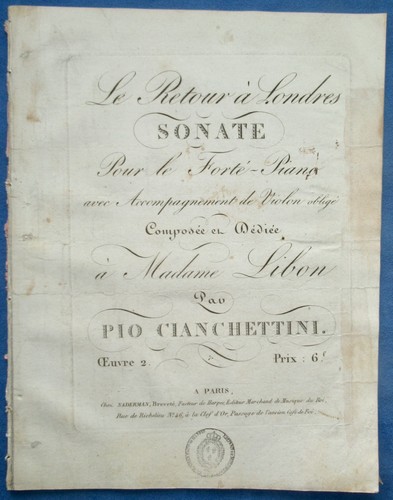 Le Retour à Londres
SONATE
Pour le Forté-Piano
avec Accompagnement de Violon obligé
Composée et Dédiée
à Madame Libon
Par
PIO CIANCHETTINI.
Œuvre 2. Prix : 6f
A PARIS,
Chez NADERMAN, Breveté, Facteur de Harpes, Editeur Marchand de Musique du Roi,
Rue de Richelieu, No. 46, à la Clef d'Or, Passage de l'ancien Café de Foi.